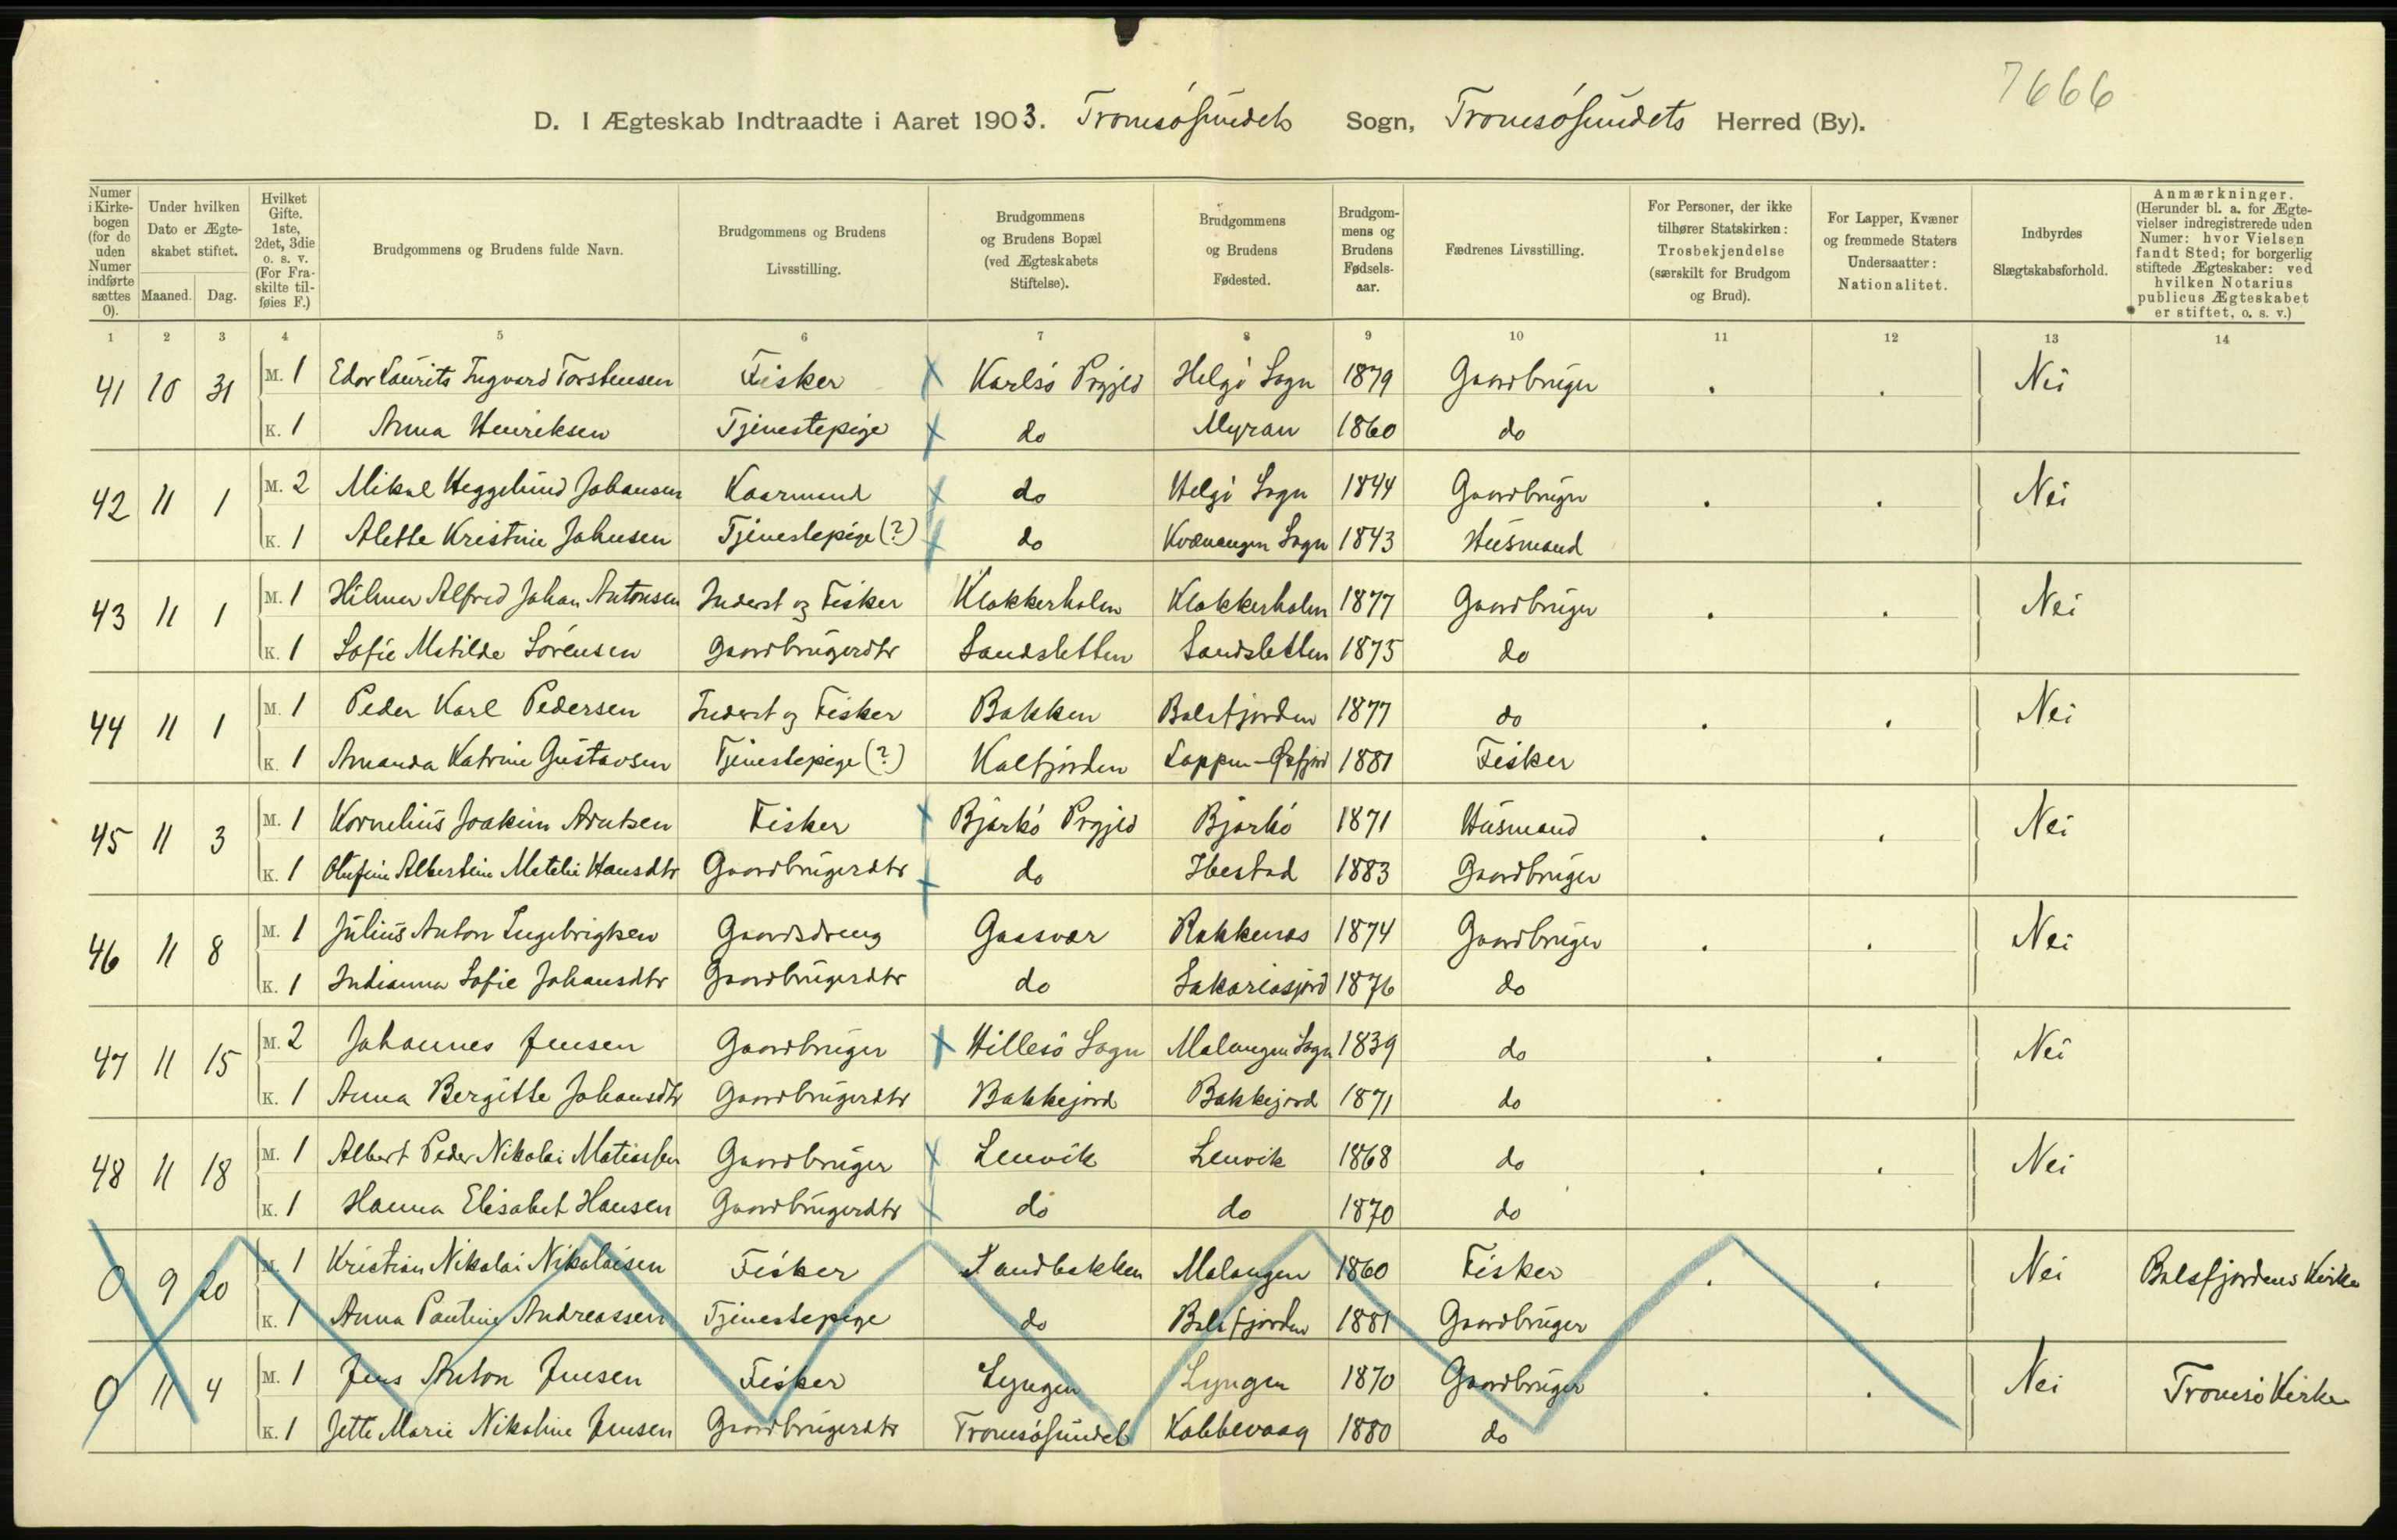 7666
D. I Ægteskab Indtraadte i Aaret 1903. Tromsøsundets Sogn, Tromsøsundets Herred (By).
Numer i Kirkebogen (for de uden Numer indførte sættes 0). | Under hvilken Dato er Ægteskabet stiftet. Maaned. Dag. | Hvilket Gifte. 1ste, 2det, 3die o. s. v. (For Fraskilte tilføies F.) | Brudgommens og Brudens fulde Navn. | Brudgommens og Brudens Livsstilling. | Brudgommens og Brudens Bopæl (ved Ægteskabets Stiftelse). | Brudgommens og Brudens Fødested. | Brudgommens og Brudens Fødselsaar. | Fædrenes Livsstilling. | For Personer, der ikke tilhører Statskirken: Trosbekjendelse (særskilt for Brudgom og Brud). | For Lapper, Kvæner og fremmede Staters Undersaatter: Nationalitet. | Indbyrdes Slægtskabsforhold. | Anmærkninger. (Herunder bl. a. for Ægtevielser indregistrerede uden Numer: hvor Vielsen fandt Sted; for borgerlig stiftede Ægteskaber: ved hvilken Notarius publicus Ægteskabet er stiftet, o. s. v.)
1 2 3 4 5 6 7 8 9 10 11 12 13 14
41 10 31 M. 1 Edor Laurits Ingvard Torstensen Fisker Karlsø Prgjld Helgø Sogn 1879 Gaardbruger . . Nei
K. 1 Anna Henriksen Tjenestepige do Myran 1860 do
42 11 1 M. 2 Mikal Heggelund Johansen Kaarmand do Helgø Sogn 1844 Gaardbruger . . Nei
K. 1 Alette Kristine Johnsen Tjenestepige (?) do Kvænangen Sogn 1843 Husmand
43 11 1 M. 1 Hilmer Alfred Johan Antonsen Inderst og Fisker Klokkerholm Klokkerholm 1877 Gaardbruger . . Nei
K. 1 Sofie Matilde Sörensen Gaardbrugerdtr Sandsletten Sandsletten 1875 do
44 11 1 M. 1 Peder Karl Pedersen Inderst og Fisker Bakken Balsfjorden 1877 do . . Nei
K. 1 Amanda Katrine Gustavsen Tjenestepige (?) Kalfjorden Loppen-Øxfjord 1881 Fisker
45 11 3 M. 1 Kornelius Joakim Arntsen Fisker Bjarkö Prgjld Bjarkö 1871 Husmand . . Nei
K. 1 Olufine Albertine Metelie Hansdtr Gaardbrugerdtr do Ibestad 1883 Gaardbruger
46 11 8 M. 1 Julius Anton Ingebrigtsen Gaardsdreng Gaasvær Rakkenæs 1874 Gaardbruger . . Nei
K. 1 Indianna Sofie Johansdtr Gaardbrugerdtr do Sakariasjord 1876 do
47 11 15 M. 2 Johannes Jensen Gaardbruger Hillesö Sogn Malangen Sogn 1839 do . . Nei
K. 1 Anna Bergitte Johansdtr Gaardbrugerdtr Bakkejord Bakkejord 1871 do
48 11 18 M. 1 Albert Peder Nikolai Matiassen Gaardbruger Lenvik Lenvik 1868 do . . Nei
K. 1 Hanna Elisabet Hansen Gaardbrugerdtr do do 1870 do
0 9 20 M. 1 Kristian Nikolai Nikolaisen Fisker Sandbakken Malangen 1860 Fisker . . Nei Balsfjordens Kirke
K. 1 Anna Pauline Andreassen Tjenestepige do Balsfjorden 1881 Gaardbruger
0 11 4 M. 1 Jens Anton Jensen Fisker Lyngen Lyngen 1870 Gaardbruger . . Nei Tromsö Kirke
K. 1 Jette Marie Nikoline Jensen Gaardbrugerdtr Tromsøsundet Kobbevaag 1880 do